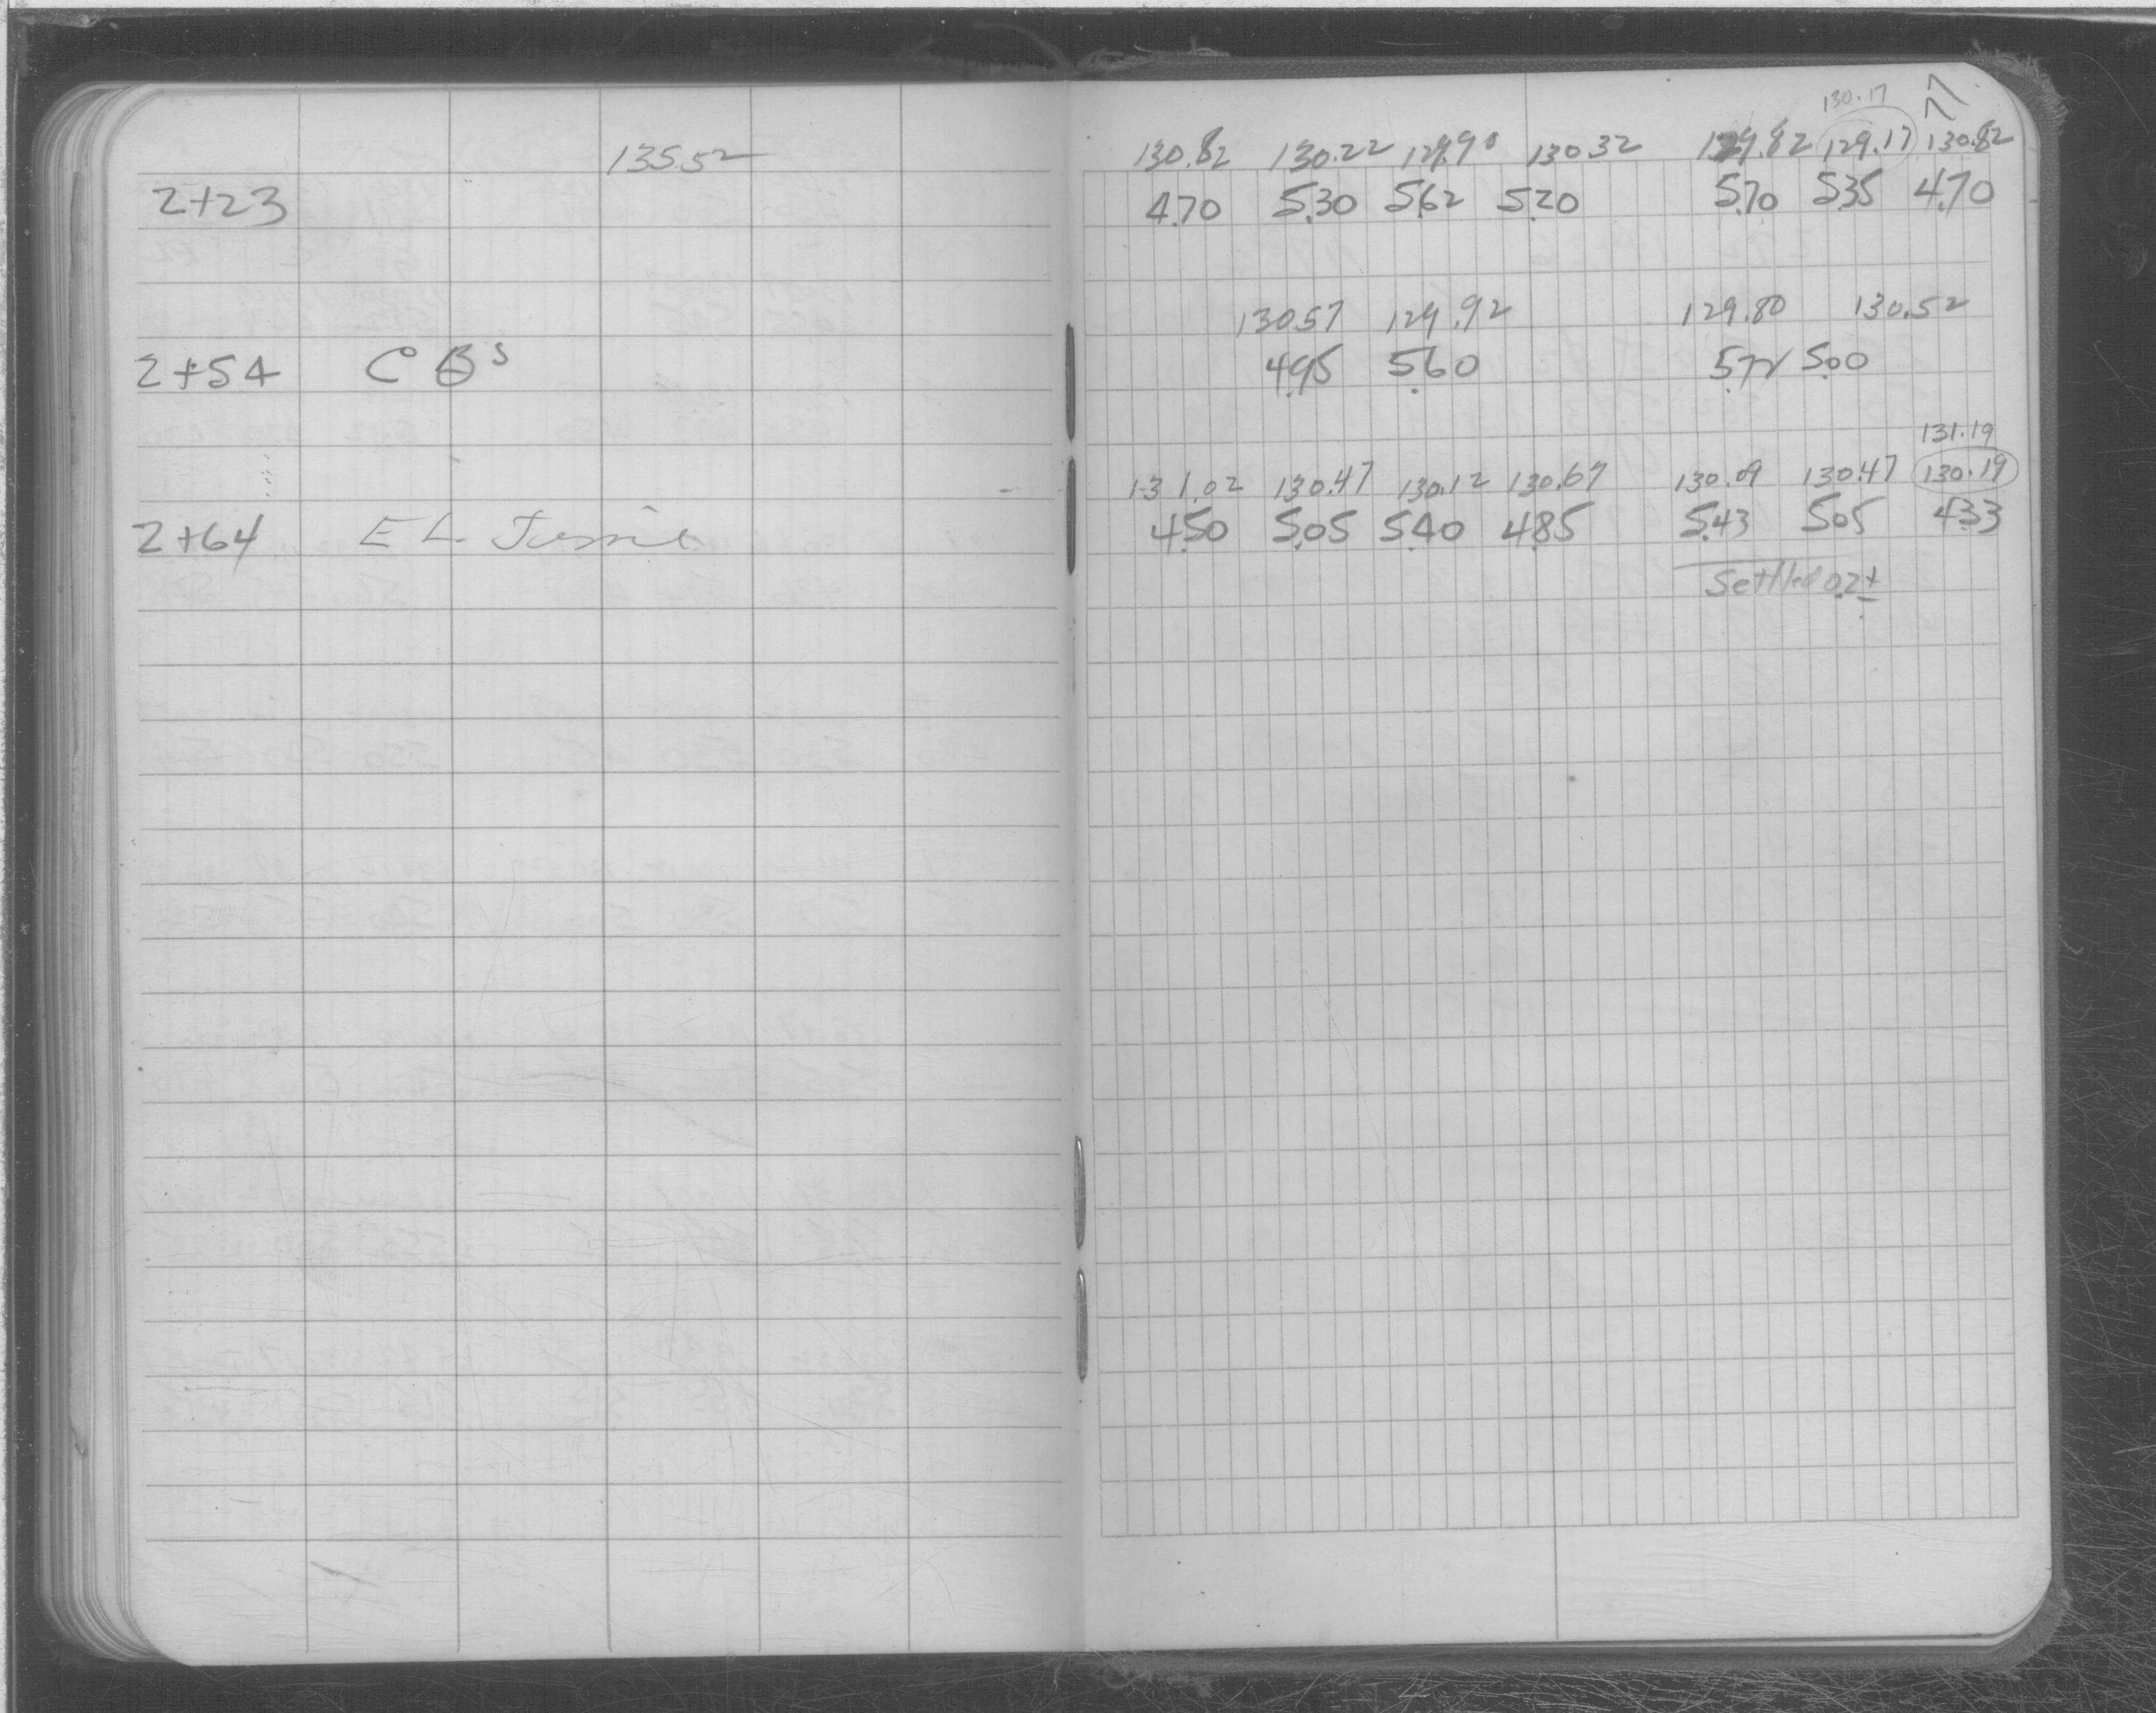 77
130.17
135.52 130.82 130.22 129.90 130.32 129.82 129.17 130.82
2+23 4.70 5.30 5.62 5.20 5.70 5.35 4.70
130.57 129.92 129.80 130.52
2+54 C B s 4.95 5.60 5.72 5.00
131.19
131.02 130.47 130.12 130.67 130.09 130.47 130.19
2+64 E L Jessie 4.50 5.05 5.40 4.85 5.43 5.05 4.33
Settled 0.2±